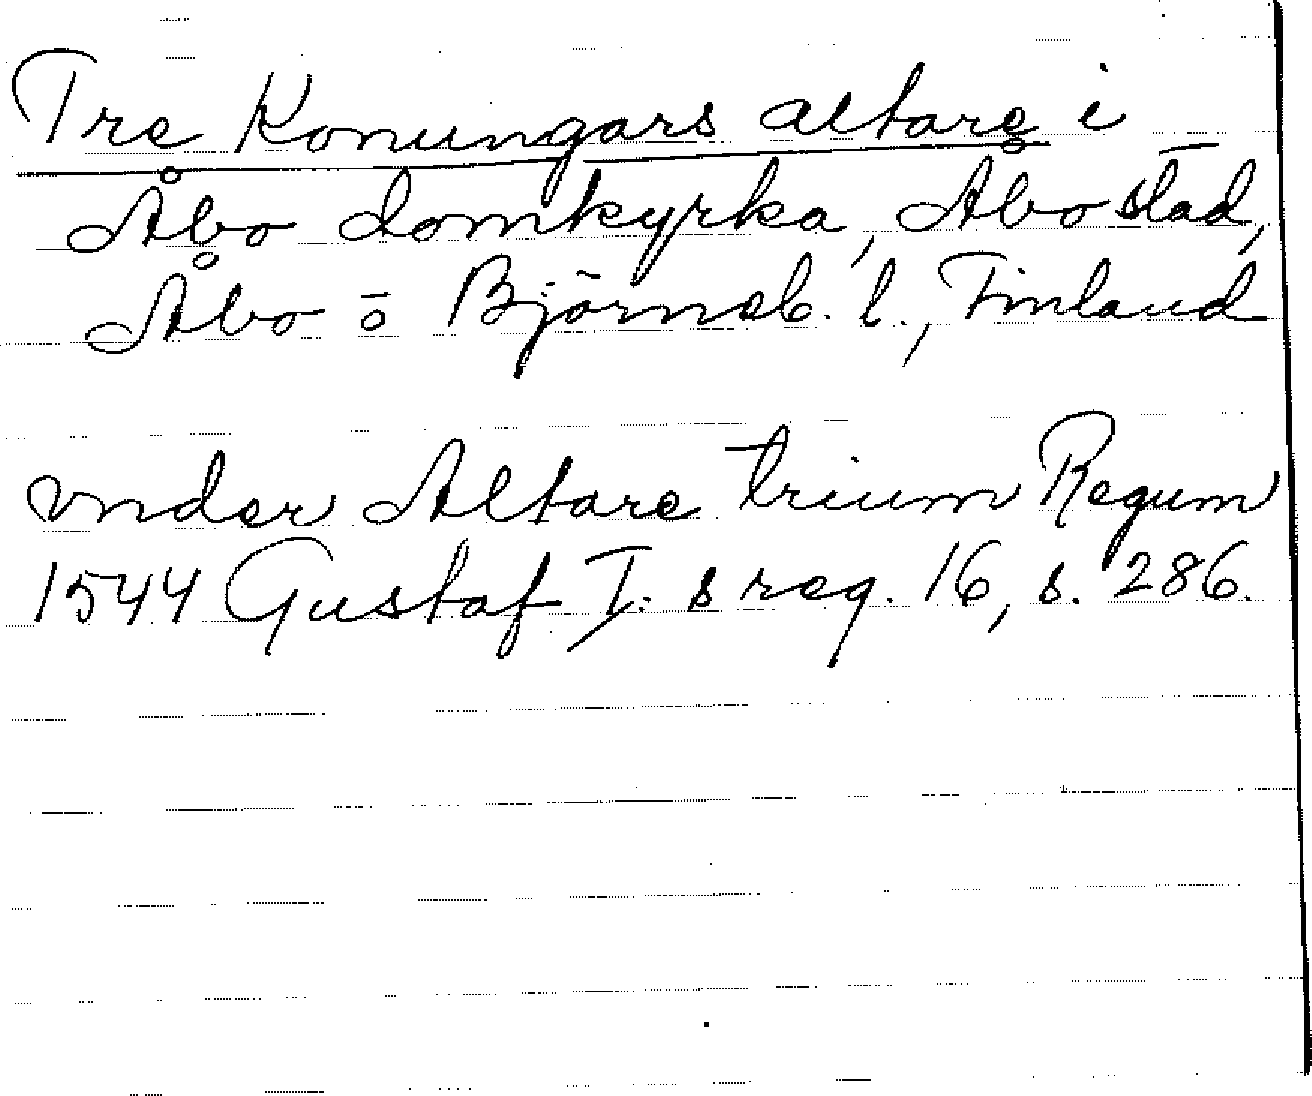 Tre Konungars altare i
Åbo domkyrka, Åbo stad,
Åbo o Björneb. l., Finland
vnder Altare trium Regum
1544 Gustaf I:s reg. 16, s. 286.